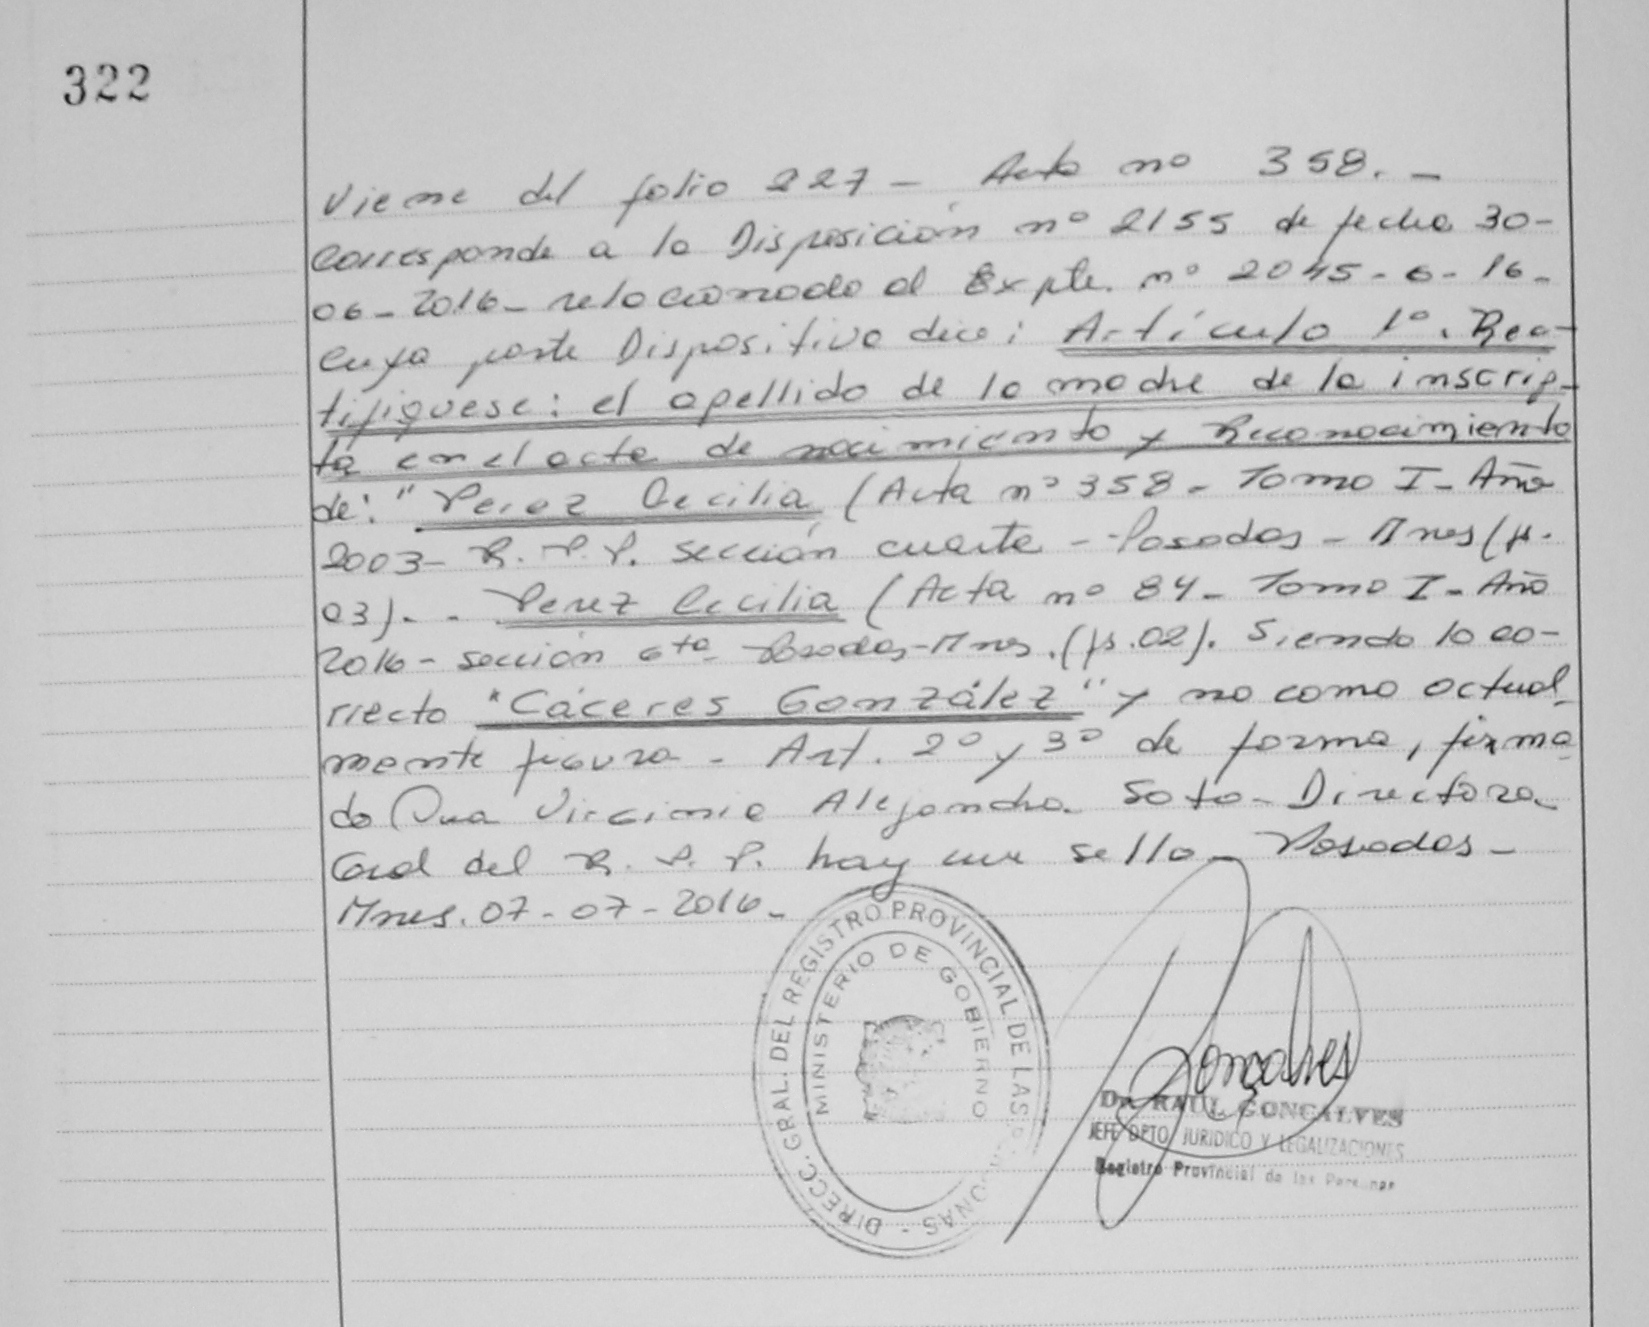 322
Viene del folio 227 - Acta nº 358. -
Corresponde a la Disposición nº 2155 de fecha 30-
06-2016- relacionado al Expte. nº 2045-6-16-
cuya parte Dispositiva dice: Artículo 1º. Rec-
tifiquese: el apellido de la madre de la inscrip-
ta en el acta de nacimiento y Reconocimiento
de: "Perez Cecilia (Acta nº 358 - Tomo I - Año
2003- R.P.P. sección cuarta - Posadas - Mnes (fs.
03). - Perez Cecilia (Acta nº 84 - Tomo I - Año
2016 - sección 6ta Posadas-Mnes. (fs. 02). Siendo lo co-
rrecto "Cáceres González" y no como actual-
mente figura - Art. 2º y 3º de forma, firma-
do Dra Virginia Alejandra Soto - Directora
Gral del R.P.P. hay un sello - Posadas -
Mnes. 07-07-2016-
DIRECC. GRAL. DEL REGISTRO PROVINCIAL DE LAS PERSONAS -
MINISTERIO DE GOBIERNO
Gonçalves
Dr. RAUL GONCALVES
JEFE DPTO. JURIDICO Y LEGALIZACIONES
Registro Provincial de las Personas